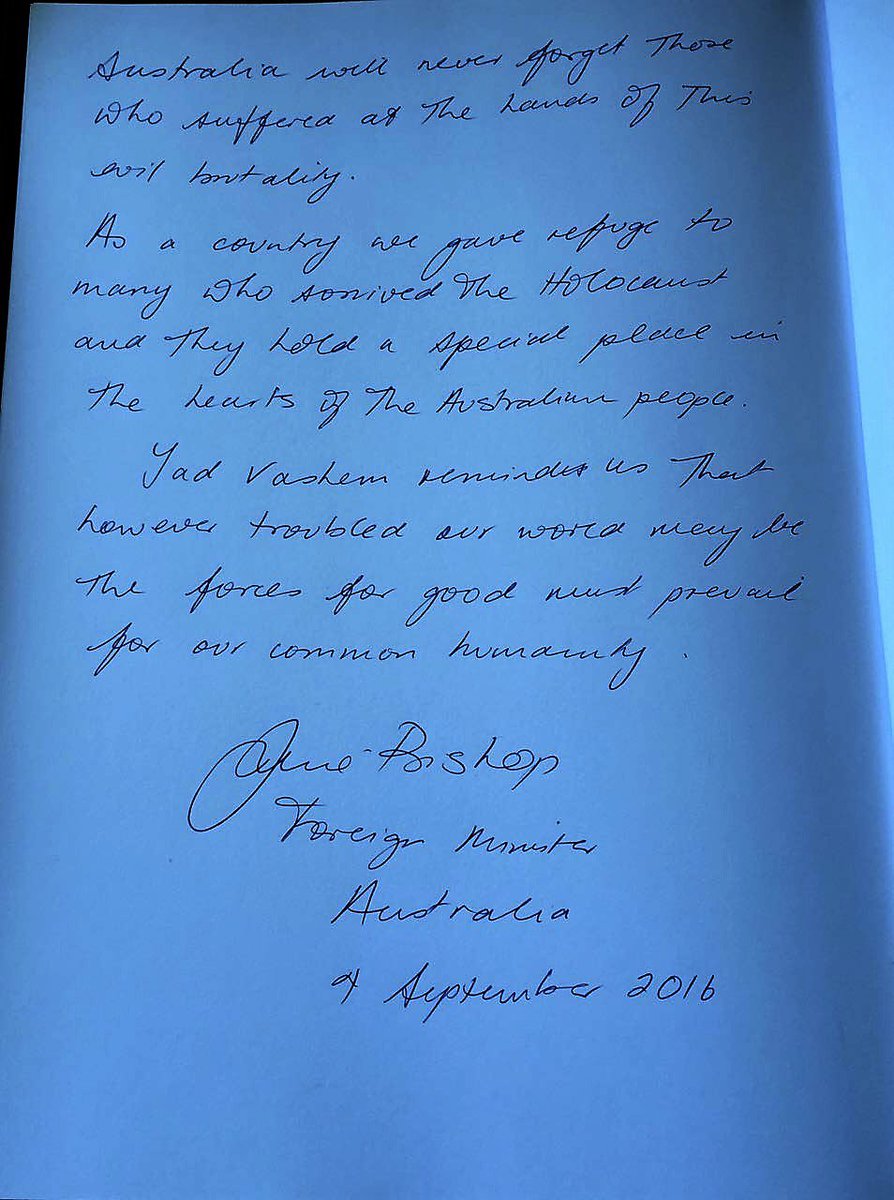 Australia will never forget those
who suffered at the hands of this
evil brutality.
As a country we gave refuge to
many who survived the Holocaust
and they hold a special place in
the hearts of the Australian people.
Yad Vashem reminds us that
however troubled our world may be
the forces for good must prevail
for our common humanity.
Julie Bishop
Foreign Minister
Australia
4 September 2016